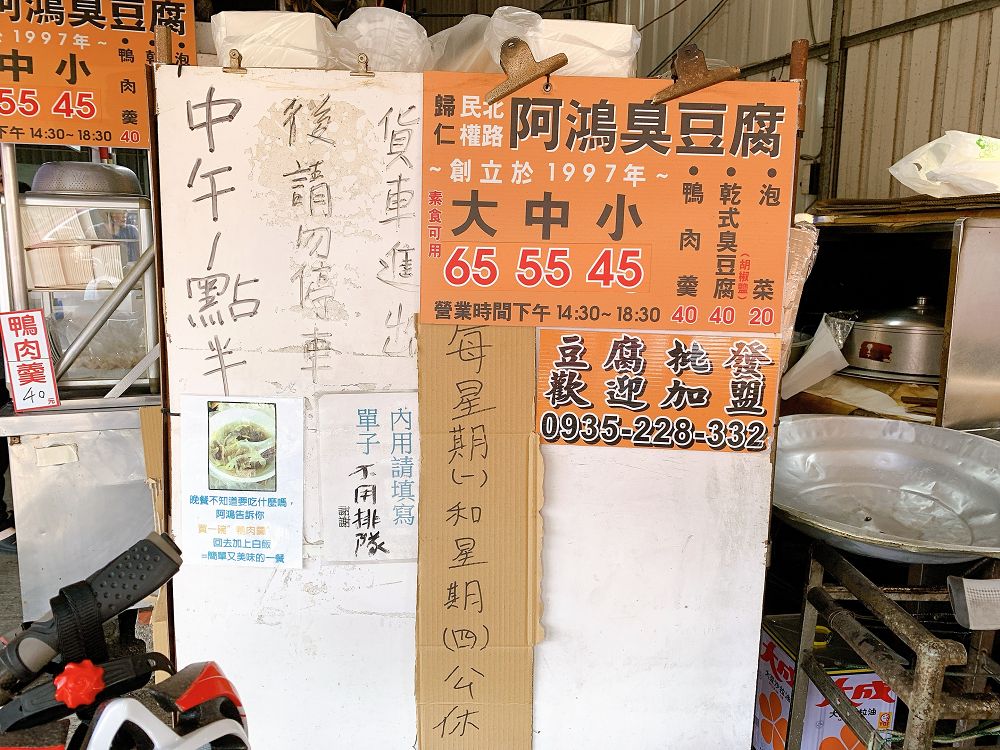 阿鴻臭豆腐
於1997年~
中 小
55 45
下午 14:30~18:30 40
鴨肉羹
鴨肉羹
40元
貨車進出
後請勿停車
中午1點半
歸仁
民權
北路
阿鴻臭豆腐
~創立於1997年~
素食可用
大 中 小
65 55 45
•鴨肉羹 40
•乾式臭豆腐(胡椒鹽) 40
•泡菜 20
營業時間下午 14:30~18:30
豆腐批發
歡迎加盟
0935-228-332
每星期(一)和星期(四)公休
內用請填寫
單子 不用排隊
謝謝
晚餐不知道要吃什麼嗎,
阿鴻告訴你
買一碗"鴨肉羹"
回去加上白飯
=簡單又美味的一餐
大成
大成